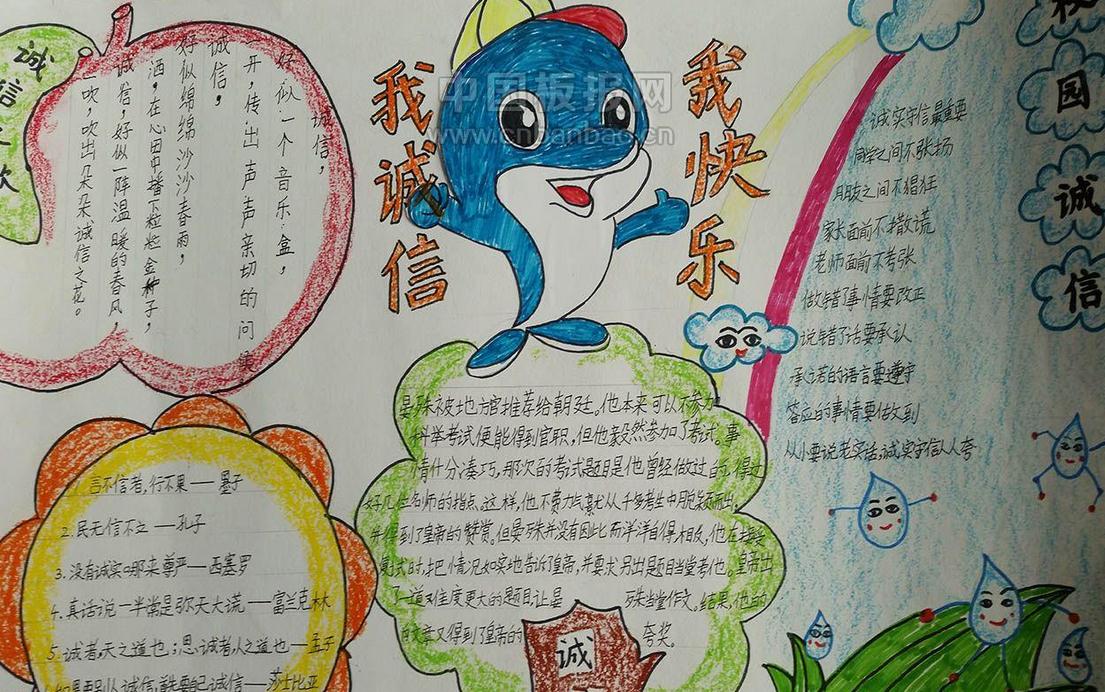 诚信之歌
诚信，
好似一个音乐盒，
一开，传出声声亲切的问
诚信，
好似绵绵沙沙春雨，
洒，在心田中播下粒粒金种子，
诚信，好似一阵温暖的春风，
一吹，吹出朵朵诚信之花。
我诚信
我快乐
中国板报网
www.cnbanbao.cn
校园诚信
诚实守信最重要
同学之间不张扬
朋友之间不猖狂
家长面前不撒谎
老师面前不夸张
做错了事情要改正
说错了话要承认
承诺的语言要遵守
答应的事情要做到
从小要说老实话，诚实守信人人夸
晏殊被地方官推荐给朝廷。他本来可以不参加
科学考试便能得到官职，但他毅然参加了考试。事
情什分凑巧，那次的考试题目是他曾经做过的，得过
好几位名师的指点。这样，他不费力气就从千多考生中脱颖而出，
并得到了皇帝的赞赏。但晏殊并没有因此而洋洋自得，相反，他在接受
复式时，把情况如实地告诉皇帝，并要求另出题目当堂考他。皇帝出
了一道难度更大的题目让晏殊当堂作文。结果，他的
文章又得到了皇帝的夸奖。
诚
1. 言不信者，行不果——墨子
2. 民无信不立——孔子
3. 没有诚实哪来尊严——西塞罗
4. 真话说一半常是弥天大谎——富兰克林
5. 诚者，天之道也；思诚者，人之道也——孟子